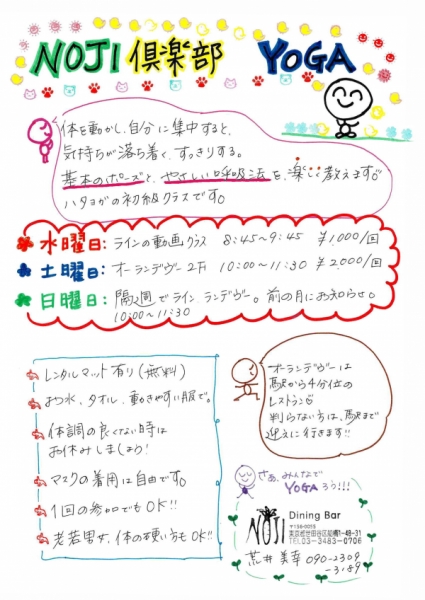 NOJI 倶楽部 YOGA
体を動かし、自分に集中すると、
気持ちが落ち着く、すっきりする。
基本のポーズと、やさしい呼吸法を、楽しく教えます。
ハタヨガの初級クラスです。
水曜日: ラインの動画クラス 8:45〜9:45 ¥1,000/回
土曜日: オーランデヴー2F 10:00〜11:30 ¥2,000/回
日曜日: 隔週でライン、ランデヴー。前の月にお知らせ。
10:00〜11:30
レンタルマット有り(無料)
お水、タオル、動きやすい服で。
体調の良くない時は
お休みしましょう!
マスクの着用は自由です。
1回の参加でもOK!!
老若男女、体の硬い方もOK!!
オーランデヴーは
駅から4分位の
レストラン
判らない方は、駅まで
迎えに行きます!!
さあ、みんなで
YOGAろう!!!
NOJI Dining Bar
〒156-0055
東京都世田谷区船橋1-48-31
TEL 03-3483-0706
荒井美幸 090-2309
-3189